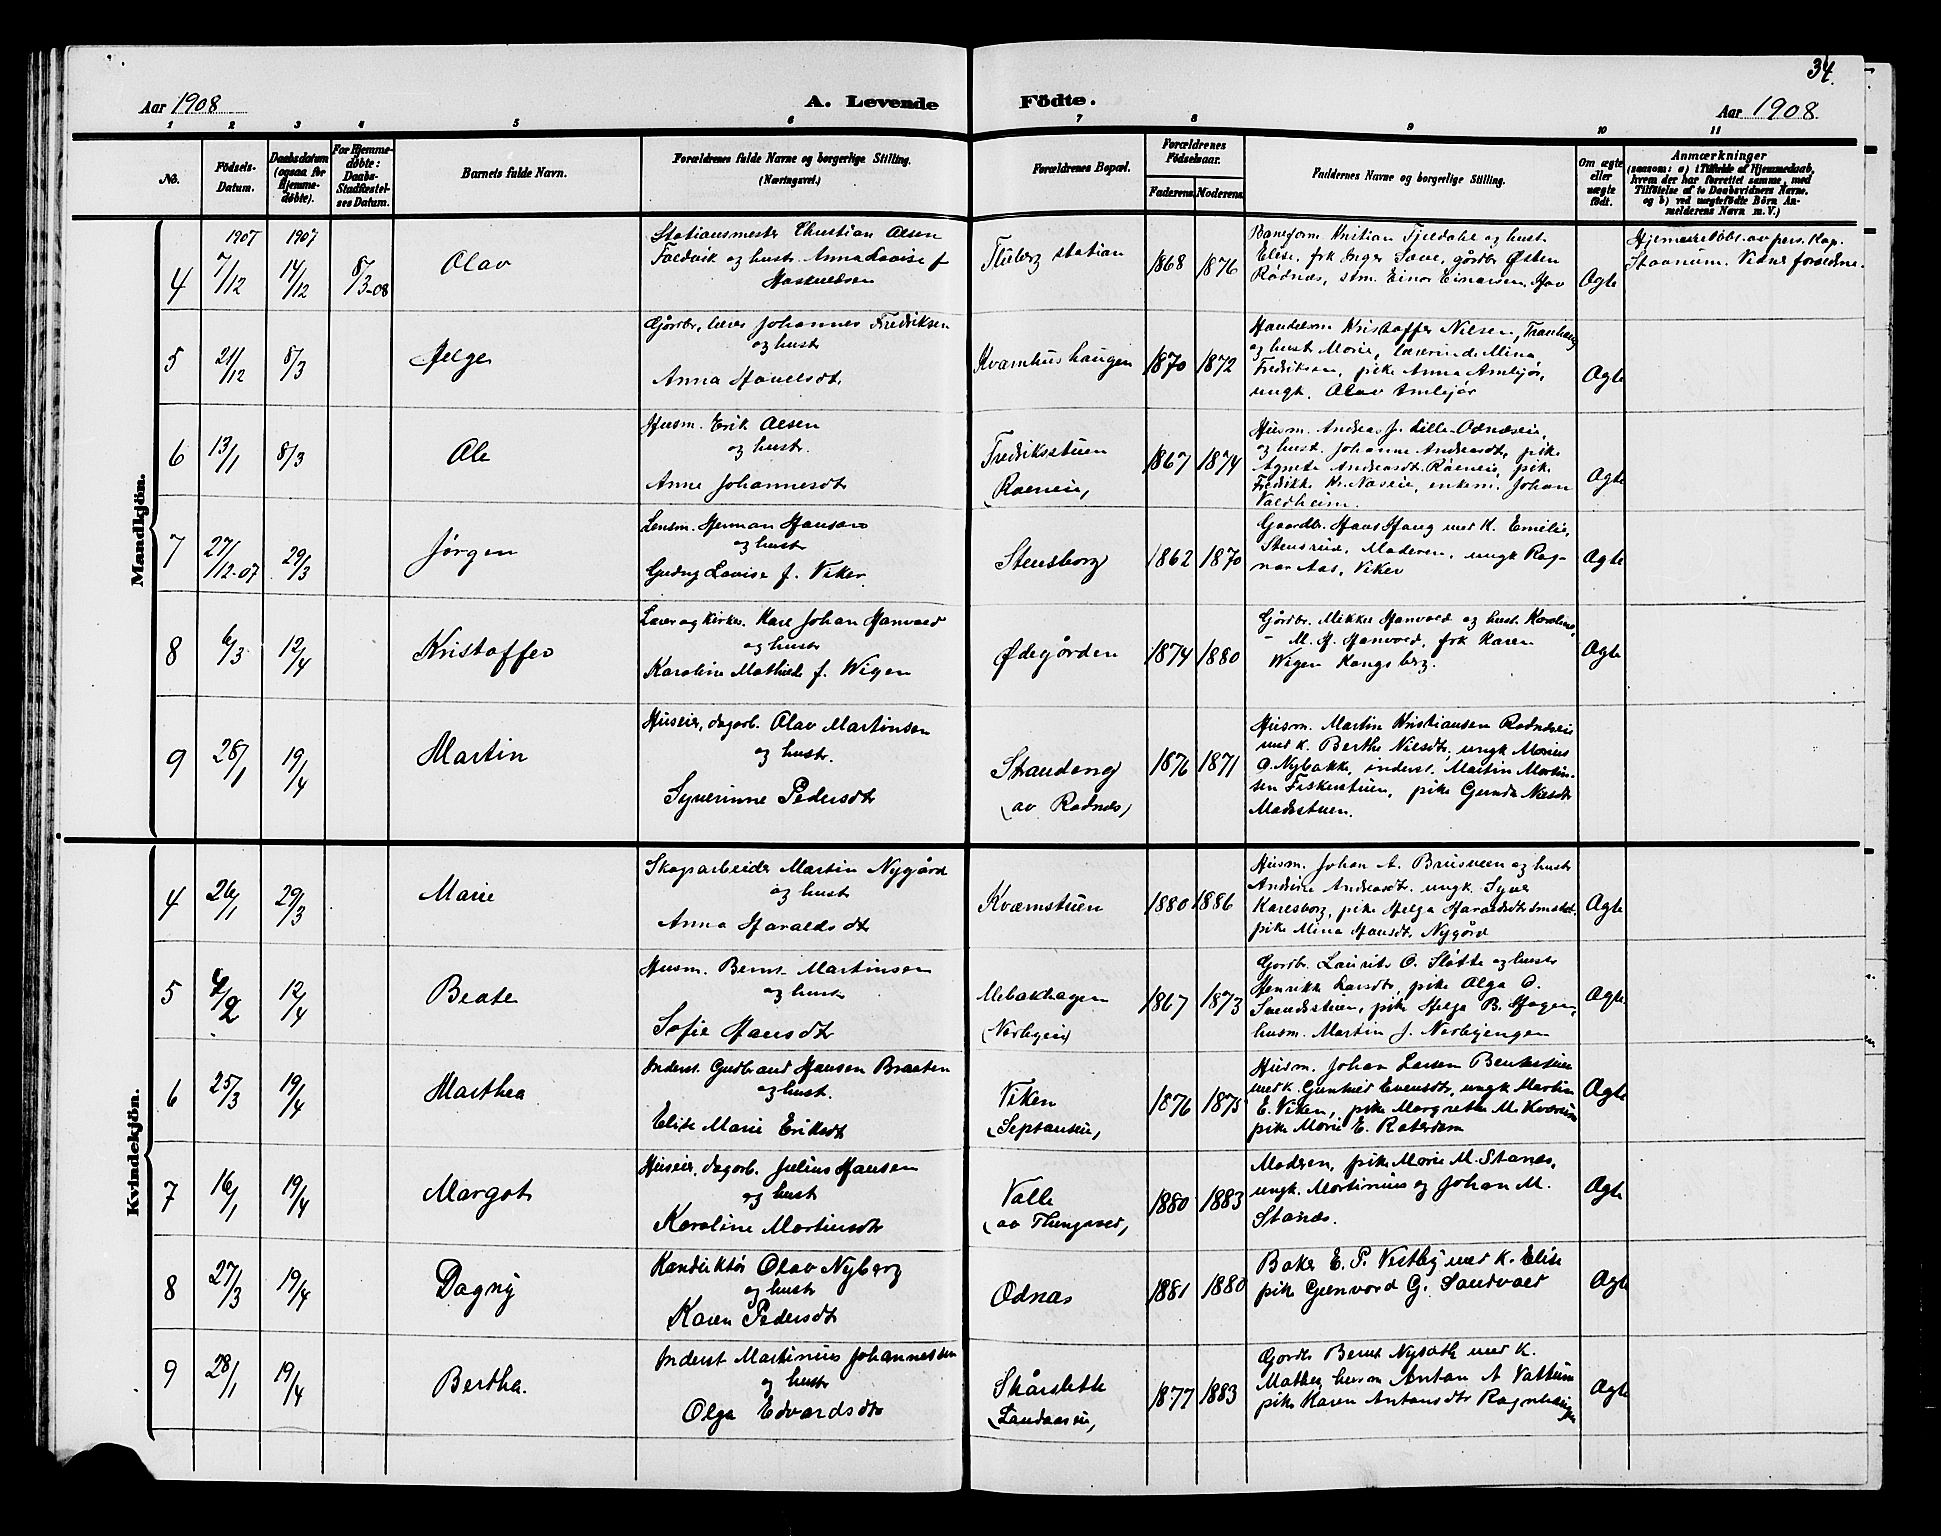 34.
Aar 1908
A. Levende
Födte.
Aar 1908.
1 2 3 4 5 6 7 8 9 10 11
No.
Födsels-
Datum.
Daabsdatum
(ogsaa for
Hjemme-
døbte).
For Hjemme-
døbte:
Daabs-
Stadfæstel-
ses Datum.
Barnets fulde Navn.
Forældrenes fulde Navne og borgerlige Stilling.
(Næringsvei.)
Forældrenes Bopæl.
Forældrenes
Födselsaar.
Faderens.
Moderens.
Faddernes Navne og borgerlige Stilling.
Om ægte
eller
uægte
født.
Anmærkninger
(saasom: a) i Tilfælde af Hjemmedaab,
hvem der har forrettet samme, med
Tilføielse af to Daabsvidners Navne,
og b) ved uægtefødte Børn An-
melderens Navn m. V.)
Mandkjön.
4
1907
7/12
1907
14/12
8/3-08
Olav
Stationsmester Christian Olsen
og hustr Anna Lovise f
Fluberg station
1868
1876
Baneform Kristian Fjeldahl og hust.
Elise, frk Inger
Rødnæs, stm. Einar Einarsen,
Ægte
5
21/12
8/3
Helge
Gårdbr, lærer Johannes Fredriksen
og hustr
Anna Hansdt.
Kvamhushaugen
1870
1872
Handelsm Kristoffer Nilsen,
og hust Marie, lærerinde Mina
Fredriksen, pike Anna Amlijør,
ungk. Olav Amlijør
Ægte
6
13/1
8/3
Ole
Husm. Erik Olsen
og hustr.
Anne Johannesdt
Fredriksstuen
1867
1874
Husm. Andreas J. Lille-Odnæseie,
og hust. Johanne Andreasdt, pike
Agnete Andreasdt. Røeneie, pik
Fredikke enkem. Johan
Valdheim.
Ægte
7
27/12-07
29/3
Jørgen
Lensm. Herman Hansen
og hustr
Gudny Lovise f. Viker
Stensborg
1862
1870
Gaardbr. Hans Haug med K. Emilie,
Stensrud, Moderen, ungk Rag-
nar Aas, Viker
Ægte
8
6/3
12/4
Kristoffer
Lærer og kirkes. Karl Johan Hanvold
og hustr
Karoline Mathilde f. Wigen
Ødegården
1874
1880
Gårdbr. Mikkel Hanvold og hust. Karoline,
- M. H. Hanvold, frk Karen
Wigen Kongsberg.
Ægte
9
28/1
19/4
Martin
Huseier, dagarb. Olav Martinsen
og hustr.
Syverinne Pedersdt
Strandeng
(av Rødnæs)
1876
1871
Husm. Martin Kristiansen Rødnæseie
med k. Berthe Nilsdt, ungk Marius
O. Nybakke, inderst. Martin Martin-
sen Fiskerstuen, pike Gunda Nilsdt
Madestuen.
Kvindekjön.
4
26/1
29/3
Marie
Skogsarbeider Martin Nygård
og hustr
Anna Haraldsdt
Kvæmstuen
1880
1886
Husm. Johan A. Brusveen og hustr
Andrine Andreasdt. ungk. Syver
Karlsborg, pike Helga Haraldsdt
pike Mina Hansdt. Nygård
Ægte
5
4/2
12/4
Beate
Husm. Bernt Martinsen
og hustr
Sofie Hansdt
Melbakhagen
1867
1873
Gårdbr. Laurits O. Sløtte og hustr
Henrikke Larsdt, pike Olga O.
pike Helga B. Hagen,
husm. Martin J. Nørbyengen
Ægte
6
25/3
19/4
Marthea
Inderst. Gudbrand Hansen Braaten
og hust.
Elise Marie Eriksdt
Viken
1876
1875
Husm. Johan Larsen
med k. Gunhild Evensdt, ungk Martin
E. Viken, pike Margrethe M. Kværum
pike Marie E. Roterdam
Ægte
7
16/1
19/4
Margot
Huseier, dagarb. Julius Hansen
og hust
Karoline Martinsdt
Valle
1880
1883
Moderen, pike Marie M. Stanæs,
ungk. Martinius og Johan M.
Stanæs.
Ægte
8
27/3
19/4
Dagny
Konduktør Olav Nyberg
og hustr
Karen Pedersdt
Odnæs
1881
1880
Baker E. P. Vestby med K. Elise
pike Gunvord G. Sandvold
Ægte
9
28/1
19/4
Bertha.
Inderst Martinius Johannessen
og hustr
Olga Edvardsdt
Skårslette
(Landaaseie)
1877
1883
Gårdb. Bernt med K.
Mathea, husm Anton A Vattum
pike Karen Antonsdt Ragnhaugen
Ægte